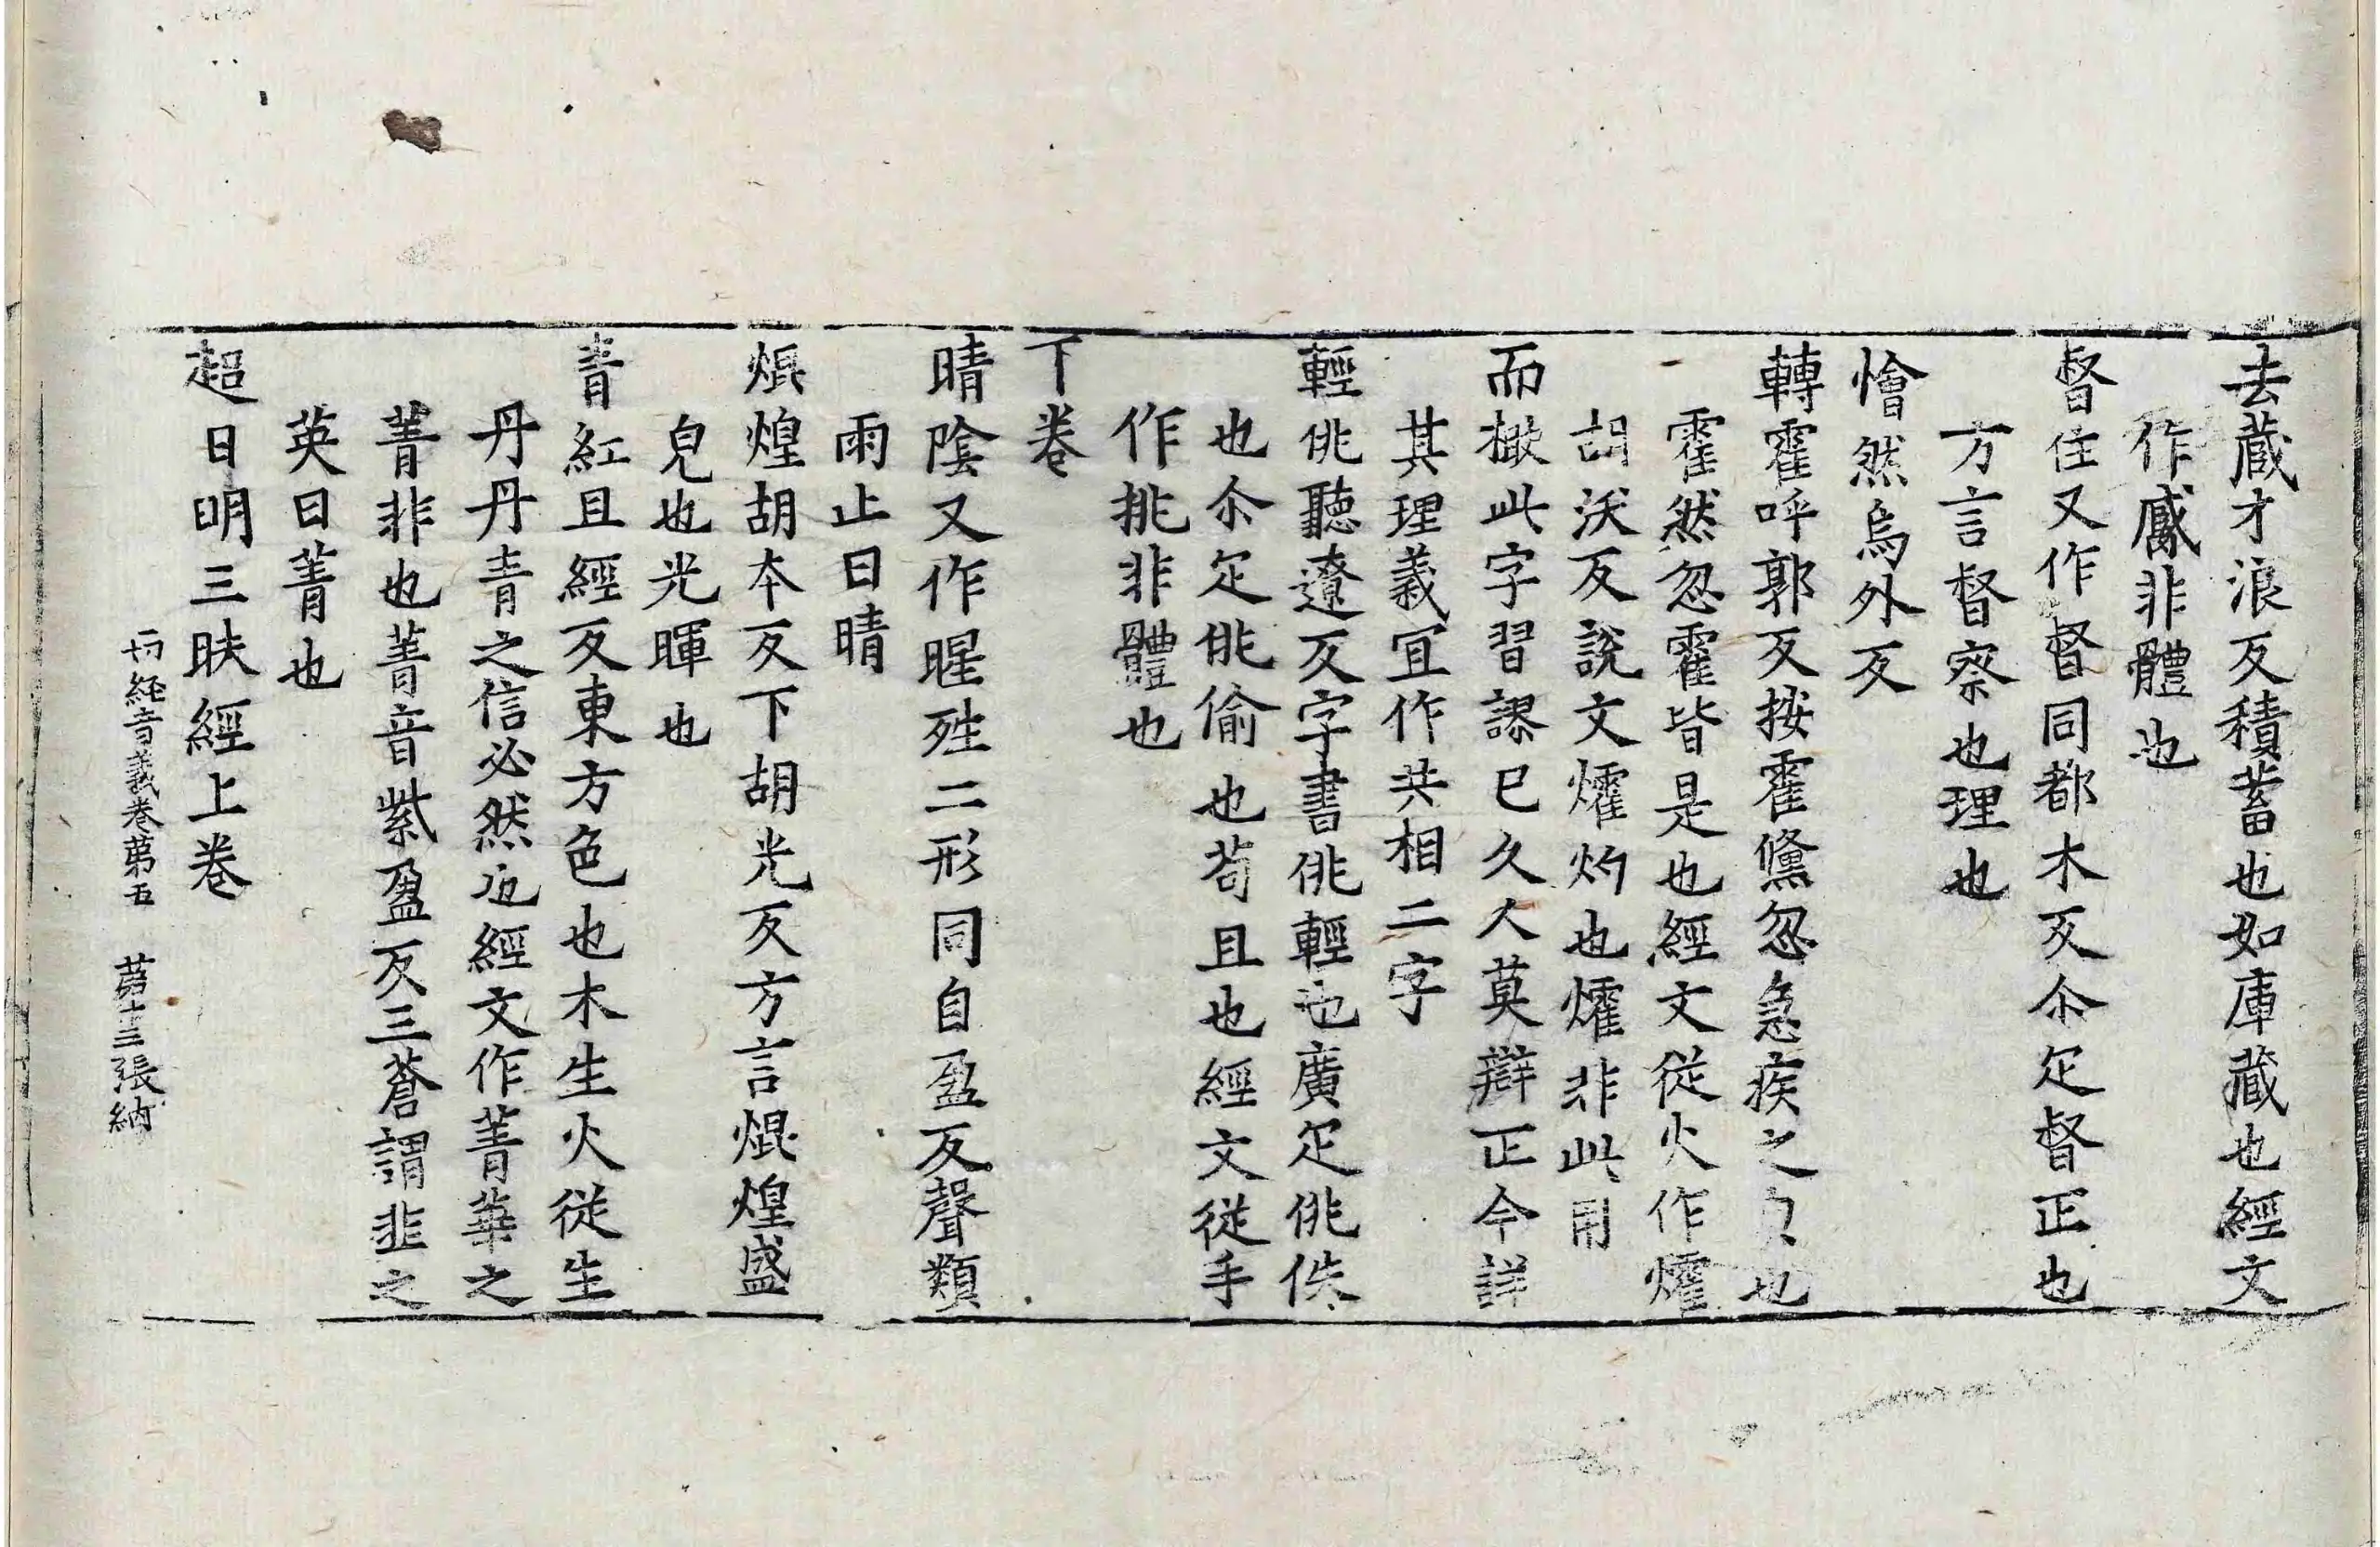 去蔵才浪反積蓄也如庫藏也經文
作感非體也
督住又作督同都木反尒疋督正也
方言督察也理也
懀然烏外反
轉霍呼郭反按霍儵忽急疾之也
霍然忽霍皆是也經文從火作㸌
胡沃反說文㸌灼也㸌非此用
而撽此字習謬已久人莫辯正今詳
其理義宜作共相二字
輕佻聽遼反字書佻輕也廣疋佻佚
也尒疋佻偷也苟且也經文從手
作挑非體也
下卷
晴陰又作暒殅二形同自盈反聲類
雨止曰晴
焜煌胡本反下胡光反方言焜煌盛
皃也光暉也
青紅且經反東方色也木生火從生
丹丹青之信必然也經文作菁華之
菁非也菁音紫盈反三蒼謂韭之
英曰菁也
超日明三昧經上卷
一切經音義卷第五 第十三張納